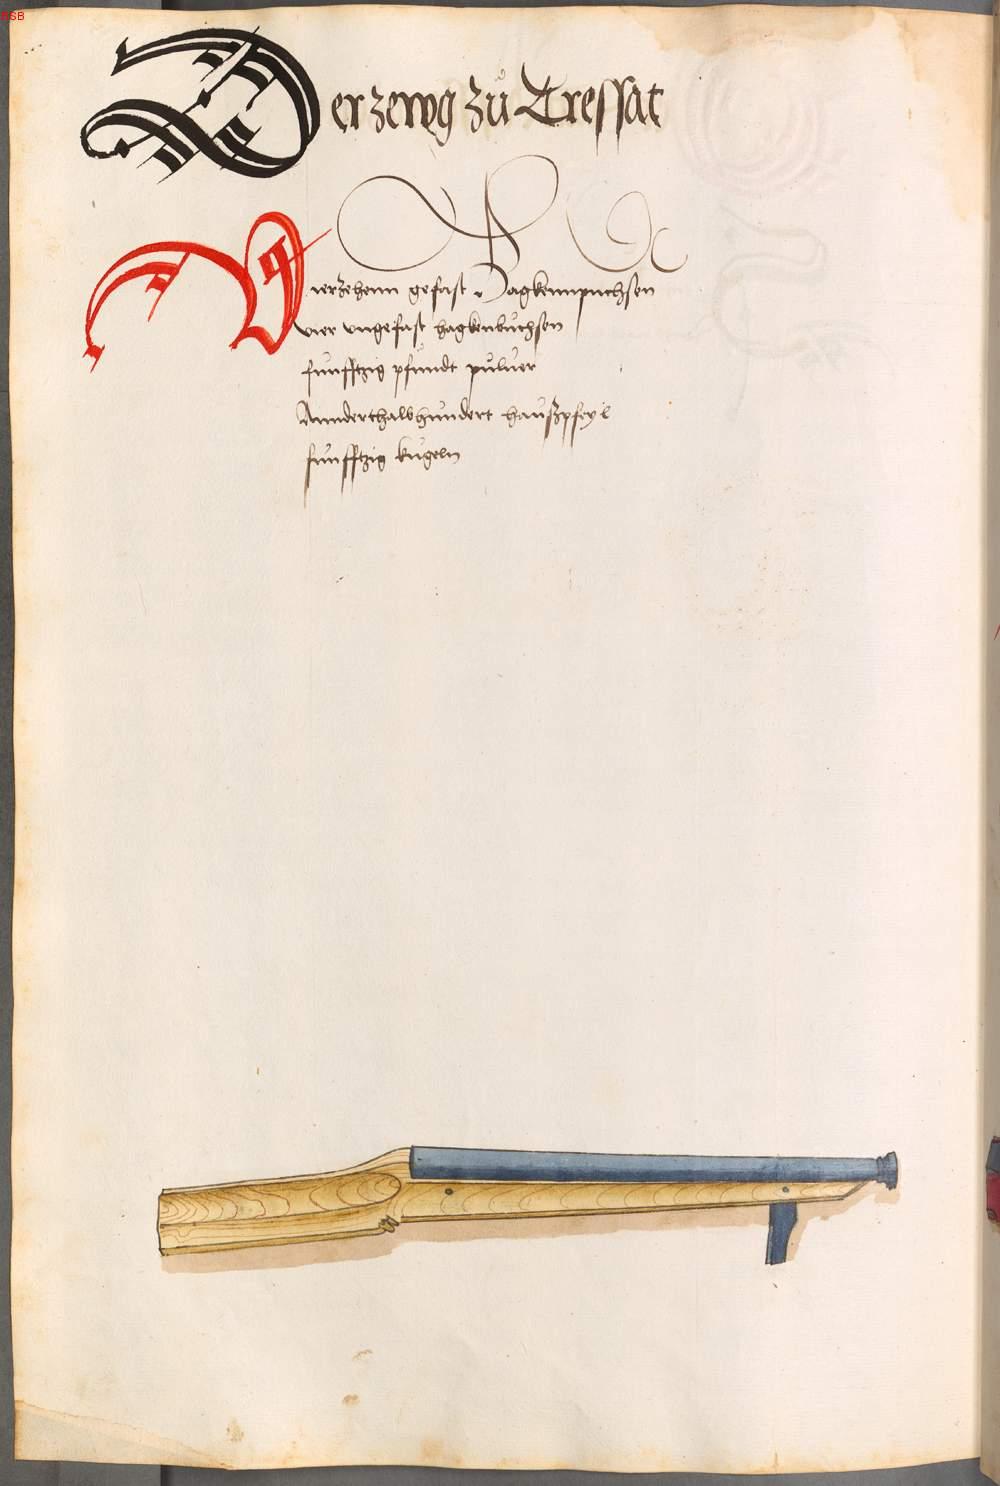 BSB
Der zewg zů Tressat
Vierzehenn gefast Hagkennpuchsen
vier vngefast hagkenbuchsen
funfftzig pfundt puluer
Annderthalbhundert haußpfeyl
funfftzig kugeln